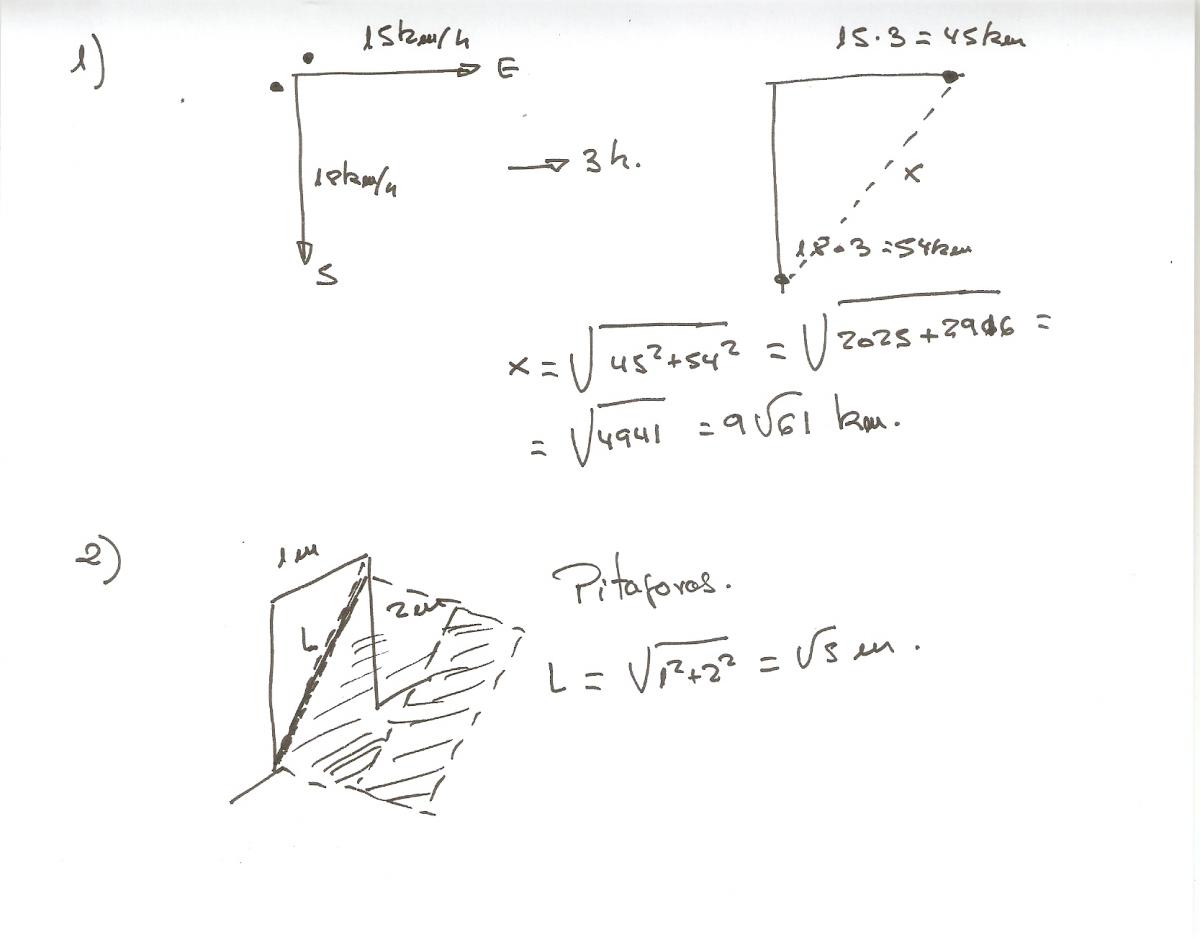 1)
15km/h
E
18km/h
S
→ 3h.
15·3=45km
x
18·3=54km
x = √45²+54² = √2025+2916 =
= √4941 = 9√61 km.
2)
1m
L
2m
Pitagoras.
L = √1²+2² = √5 m.